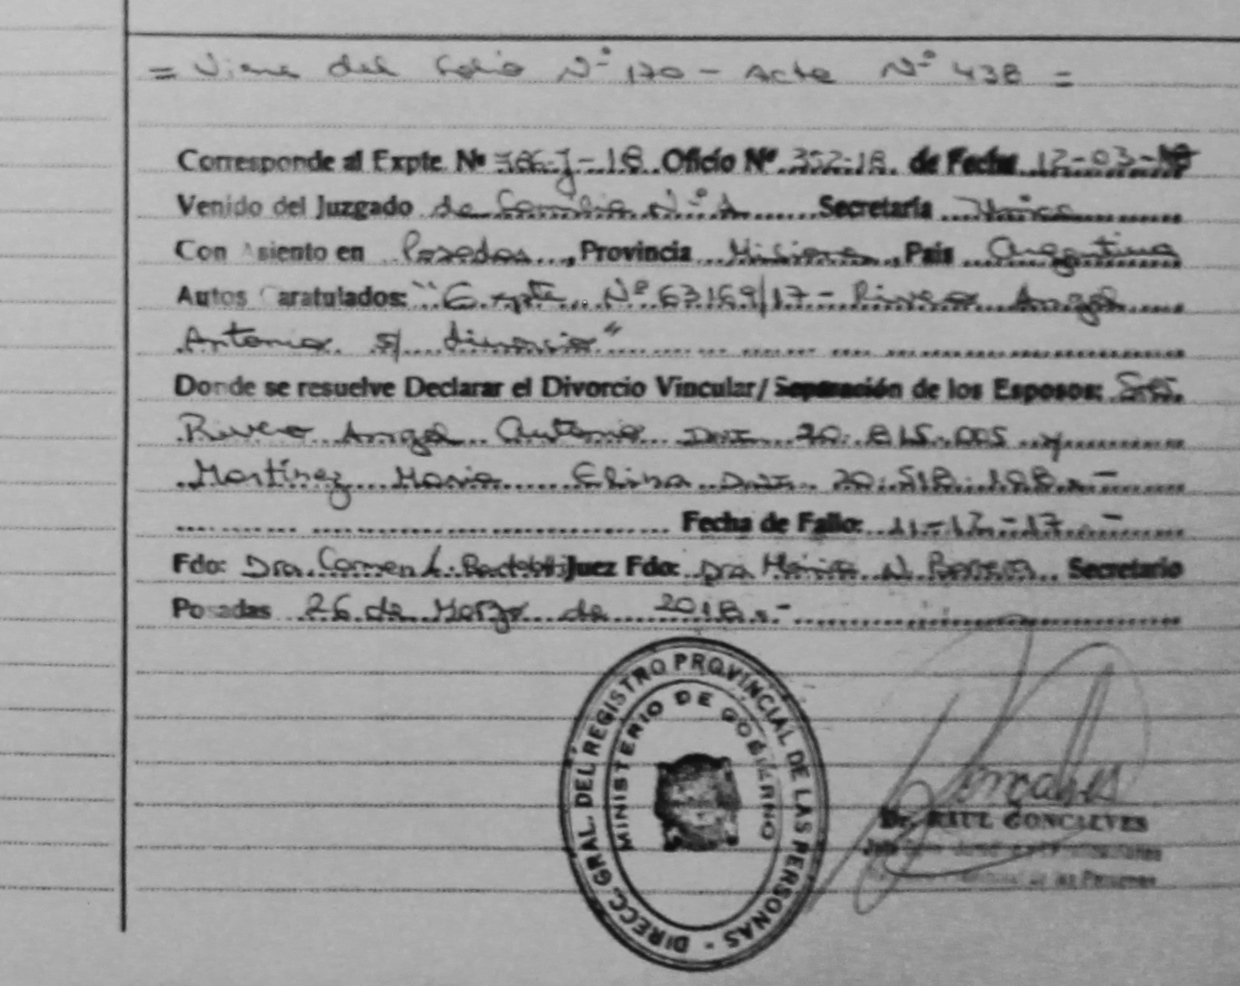 = Viene del Folio Nº 170 - Acta Nº 438 =
Corresponde al Expte. Nº 766-J-18 Oficio Nº 352-18 de Fecha 12-03-18
Venido del Juzgado de Familia Nº 1 Secretaría Única
Con Asiento en Posadas, Provincia Misiones, País Argentina
Autos Caratulados: "Expte. Nº 63169/17 - Rivero Angel
Antonio s/ divorcio"
Donde se resuelve Declarar el Divorcio Vincular/ Separación de los Esposos: Sres.
Rivero Angel Antonio DNI 20.815.005 y
Martínez Maria Elisa DNI 20.518.198.-
Fecha de Fallo: 11-12-17.-
Fdo: Dra. Carmen Juez Fdo: Dra N. Secretario
Posadas 26 de Marzo de 2018.-
DIRECC. GRAL. DEL REGISTRO PROVINCIAL DE LAS PERSONAS -
MINISTERIO DE GOBIERNO
Goncalves
Dr. RAUL GONCALVES
de las Personas